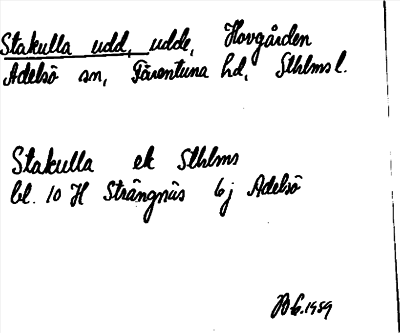 Stakulla udd, udde, Hovgården
Adelsö sn, Färentuna hd, Sthlms l.
Stakulla ek Sthlms
bl. 10 H Strängnäs 6j Adelsö
1959